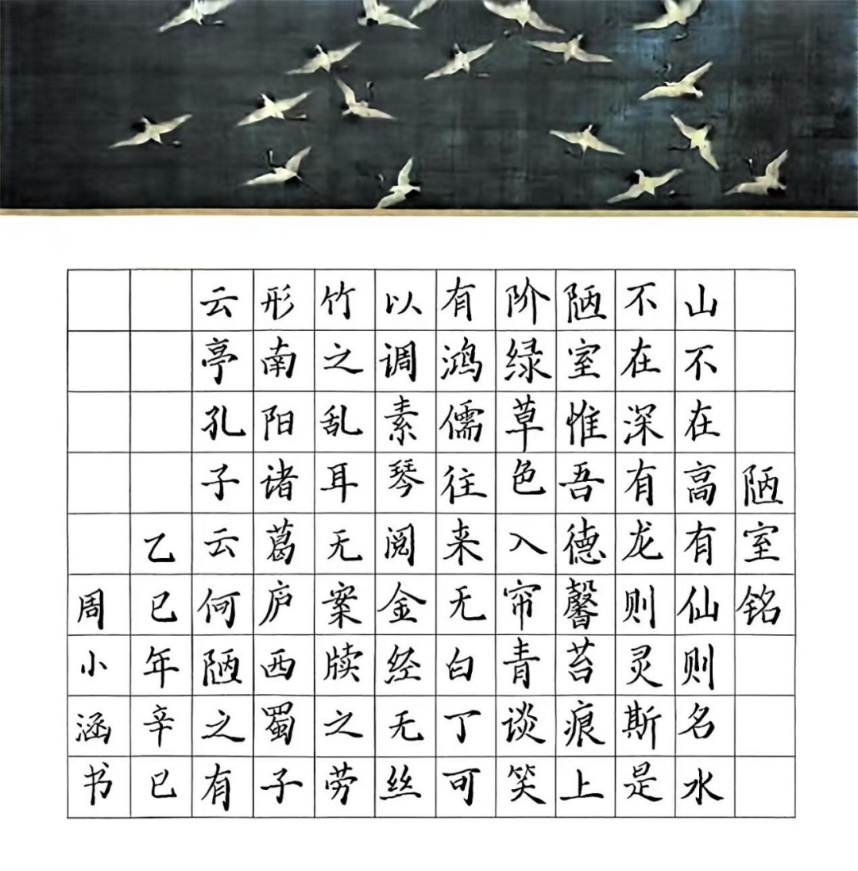 陋室铭
山不在高有仙则名水
不在深有龙则灵斯是
陋室惟吾德馨苔痕上
阶绿草色入帘青谈笑
有鸿儒往来无白丁可
以调素琴阅金经无丝
竹之乱耳无案牍之劳
形南阳诸葛庐西蜀子
云亭孔子云何陋之有
乙巳年辛巳
周小涵书